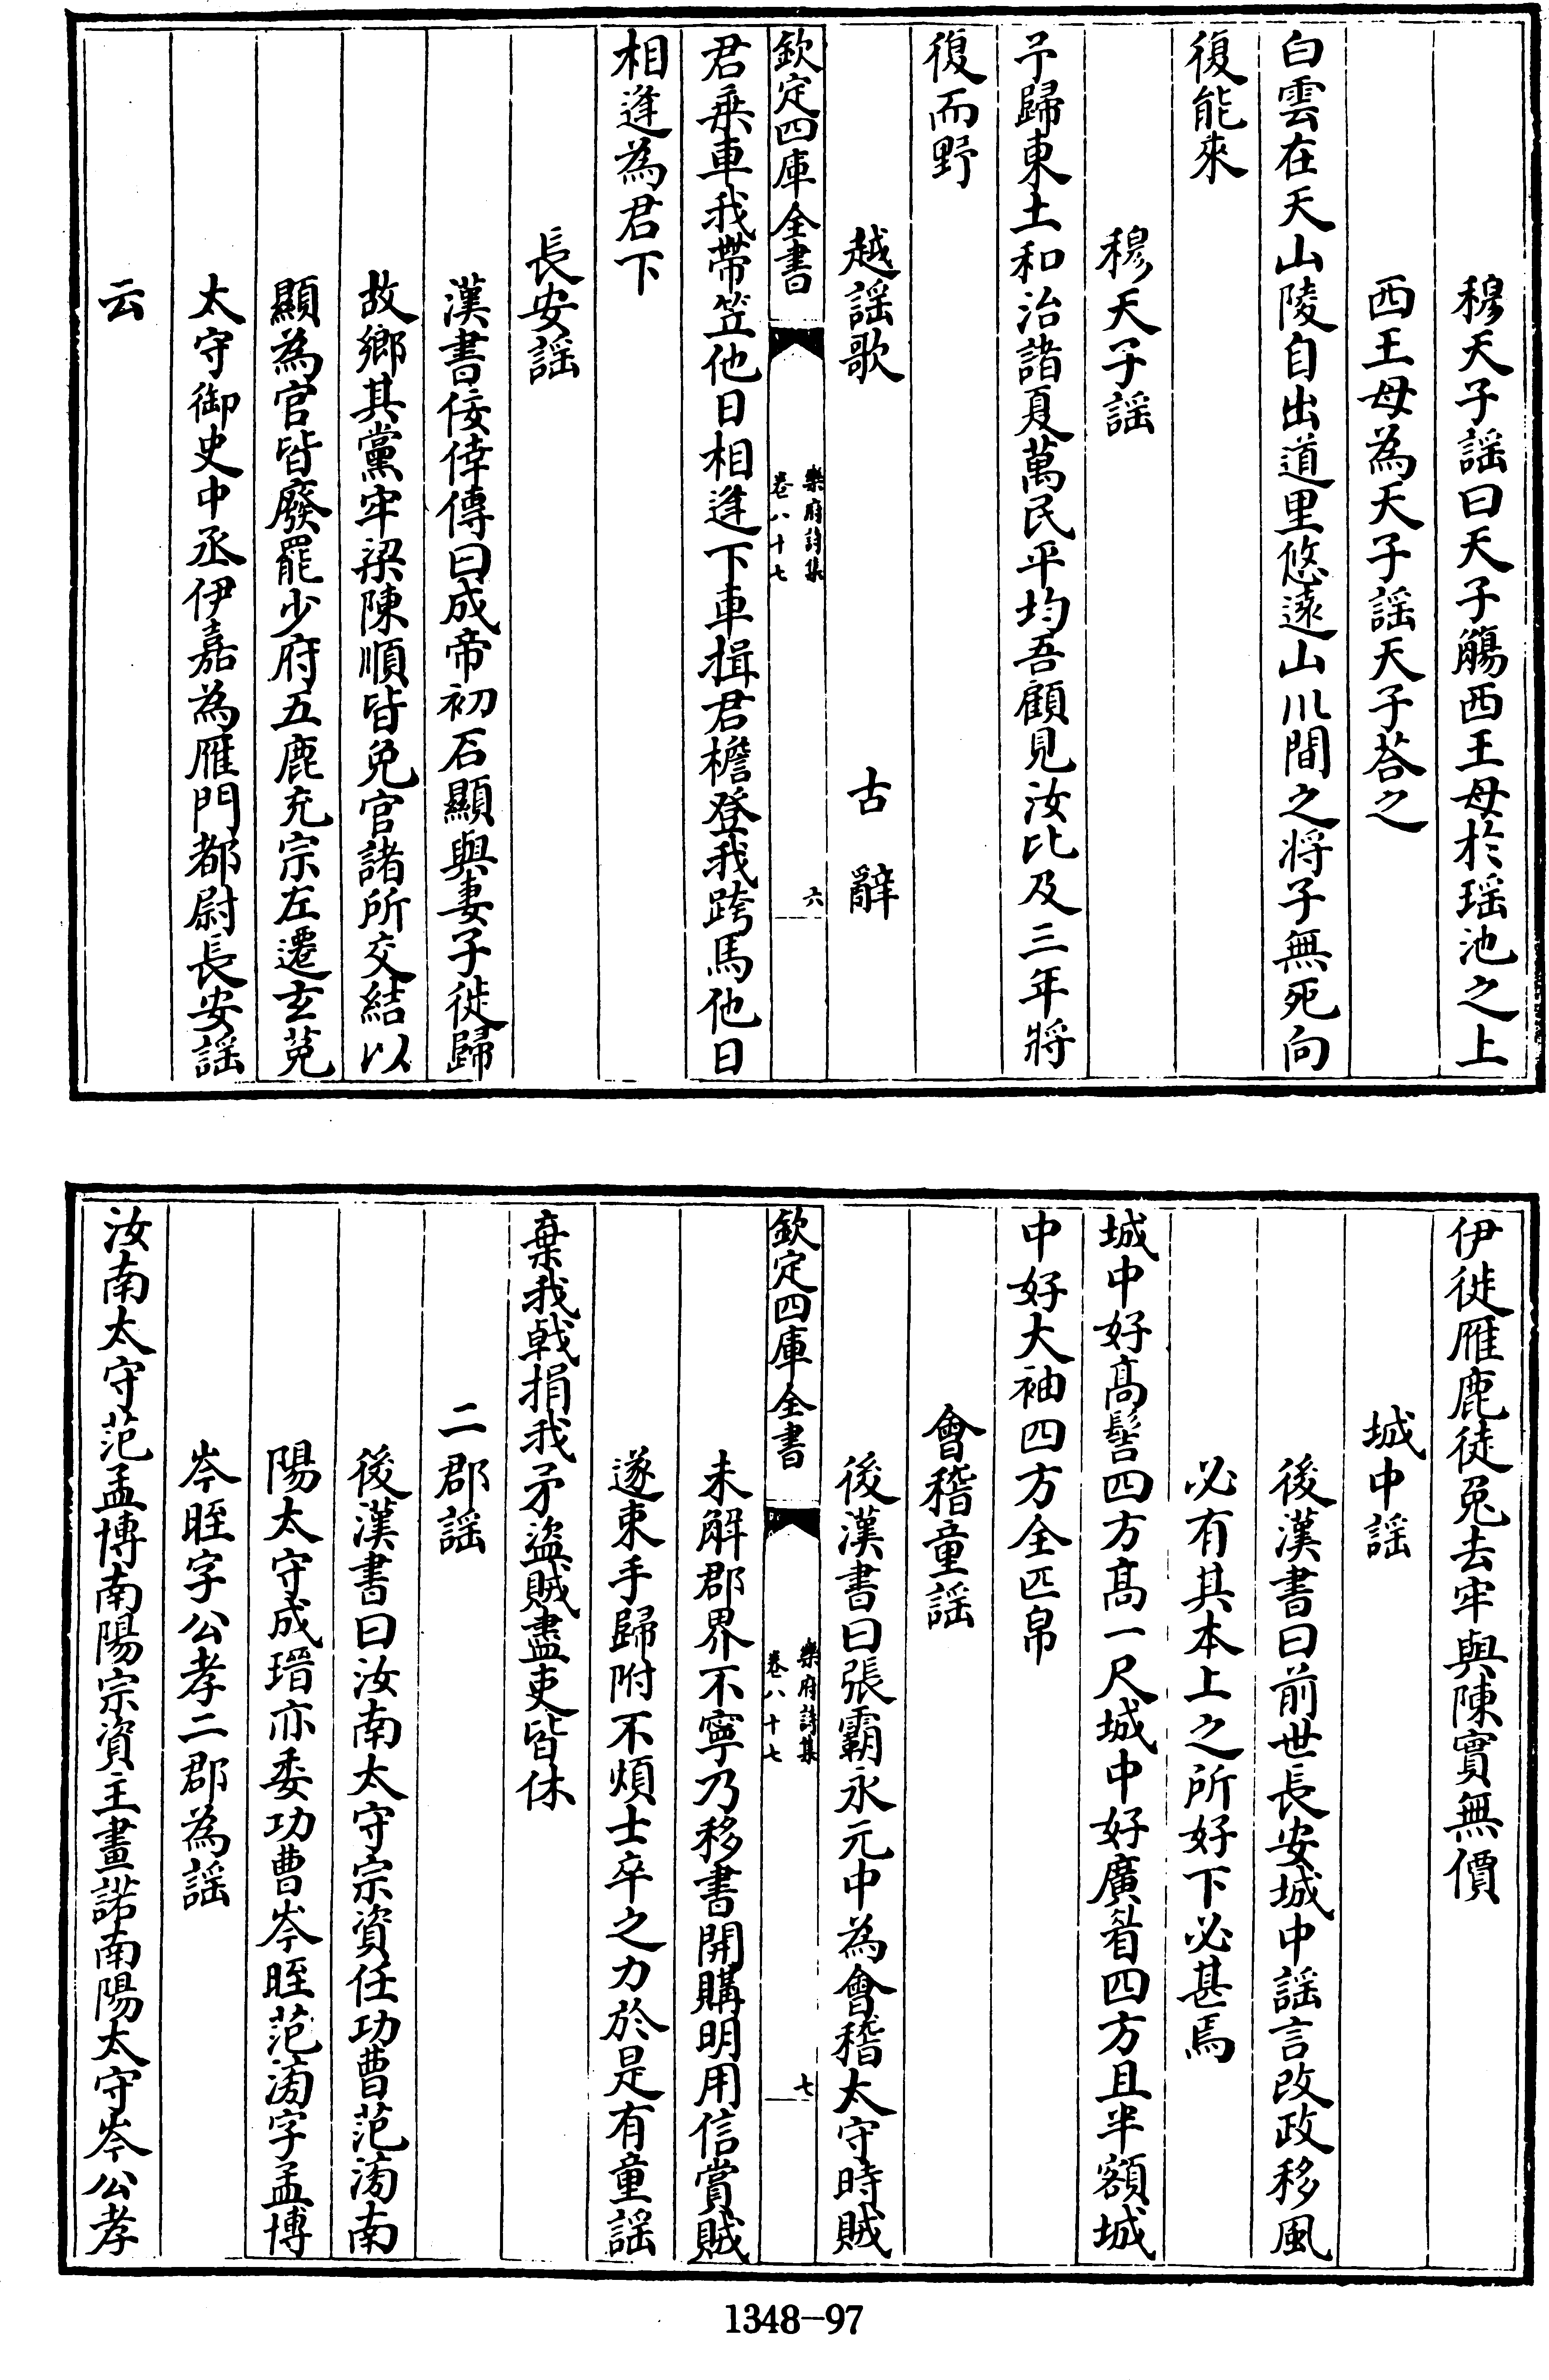 穆天子謡曰天子觴西王母於瑶池之上
西王母為天子謡天子荅之
白雲在天山陵自出道里悠逺山川間之將子無死向
復能來
穆天子謡
予歸東土和治諸夏萬民平均吾顧見汝比及三年將
復而野
越謡歌 古辭
欽定四庫全書 樂府詩集 卷八十七 六
君乘車我帶笠他日相逢下車揖君檐登我跨馬他日
相逢為君下
長安謡
漢書佞倖傳曰成帝初石顯與妻子徙歸
故鄉其黨牢梁陳順皆免官諸所交結以
顯為官皆廢罷少府五鹿充宗左遷玄莬
太守御史中丞伊嘉為雁門都尉長安謡
云
伊徙雁鹿徒兔去牢與陳實無價
城中謡
後漢書曰前世長安城中謡言改政移風
必有其本上之所好下必甚焉
城中好髙髻四方髙一尺城中好廣眉四方且半額城
中好大袖四方全匹帛
會稽童謡
後漢書曰張霸永元中為會稽太守時賊
欽定四庫全書 樂府詩集 卷八十七 七
未解郡界不寧乃移書開購明用信賞賊
遂束手歸附不煩士卒之力於是有童謡
棄我戟捐我矛盜賊盡吏皆休
二郡謡
後漢書曰汝南太守宗資任功曹范滂南
陽太守成瑨亦委功曹岑晊范滂字孟博
岑晊字公孝二郡為謡
汝南太守范孟博南陽宗資主畫諾南陽太守岑公孝
1348-97